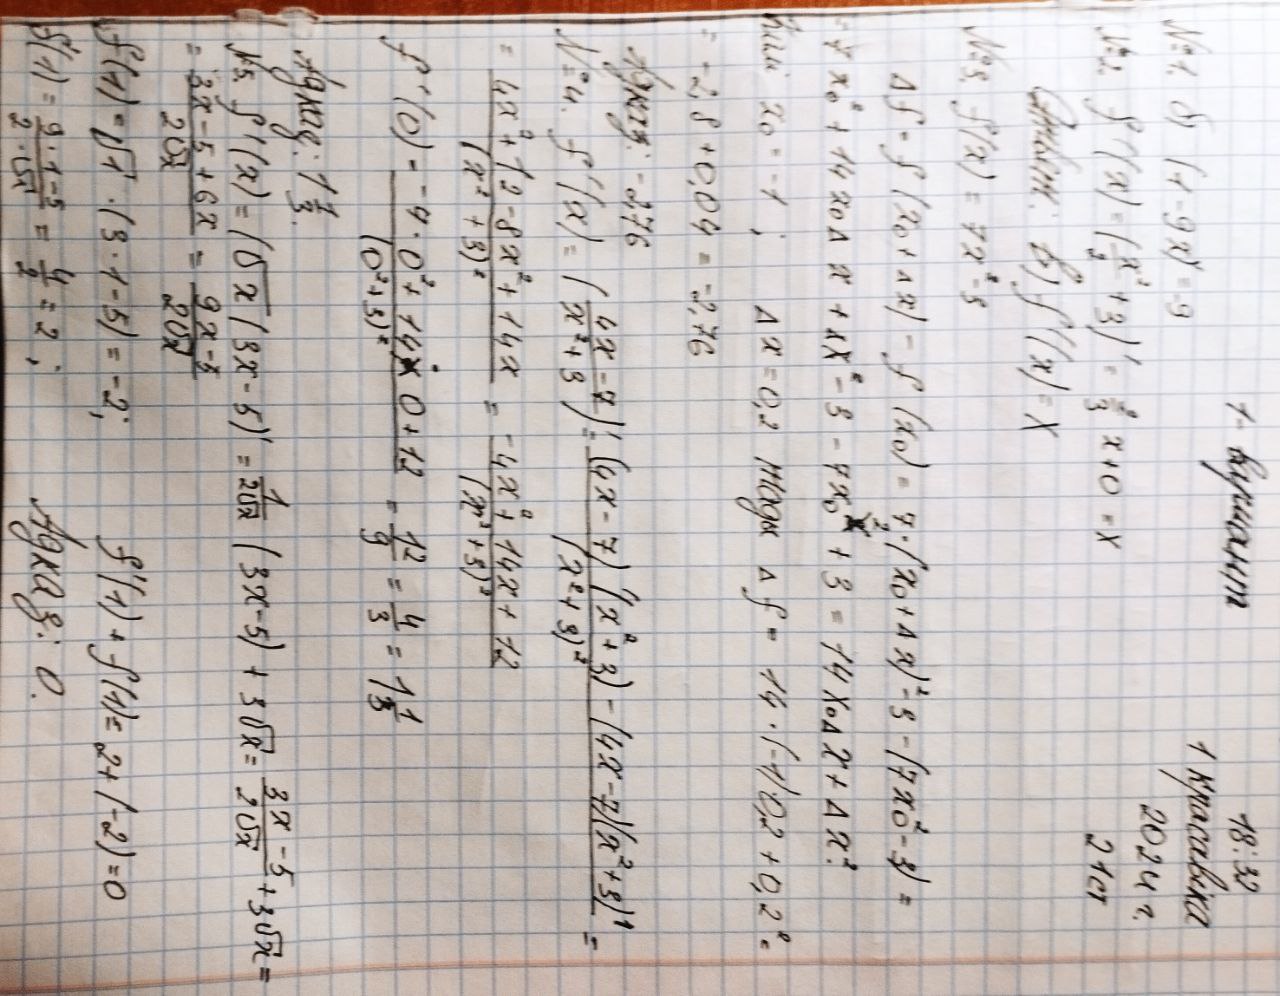 18:32
1 красавіка
2024 г.
21ст
1- варыянт
№1. б) (1-9x)' = -9
№2. f'(x) = (x²/2 + 3)' = 2/2 x + 0 = x
Адказ: б) f'(x) = x
№3. f(x) = 7x² - 3
Δf = f(x₀ + Δx) - f(x₀) = 7·(x₀ + Δx)² - 3 - (7x₀² - 3) =
= 7x₀² + 14x₀Δx + Δx² - 3 - 7x₀² + 3 = 14x₀Δx + Δx².
x₀ = -1; Δx = 0,2 тогда Δf = 14·(-1)0,2 + 0,2² =
= -2,8 + 0,04 = -2,76
Адказ: -2,76
№4. f'(x) = ((4x-7)/(x²+3))' = ((4x-7)'(x²+3) - (4x-7)(x²+3)')/(x²+3)² =
= (4x² + 12 - 8x² + 14x)/(x² + 3)² = (-4x² + 14x + 12)/(x² + 3)²
f'(0) = (-4·0² + 14·0 + 12)/(0² + 3)² = 12/9 = 4/3 = 1 1/3
Адказ: 1 1/3.
№5. f'(x) = (√x (3x - 5))' = 1/(2√x) (3x - 5) + 3√x = (3x - 5)/(2√x) + 3√x =
= (3x - 5 + 6x)/(2√x) = (9x - 5)/(2√x)
f(1) = √1 · (3·1 - 5) = -2; f'(1) + f(1) = 2 + (-2) = 0
f'(1) = (9·1 - 5)/(2·√1) = 4/2 = 2; Адказ: 0.